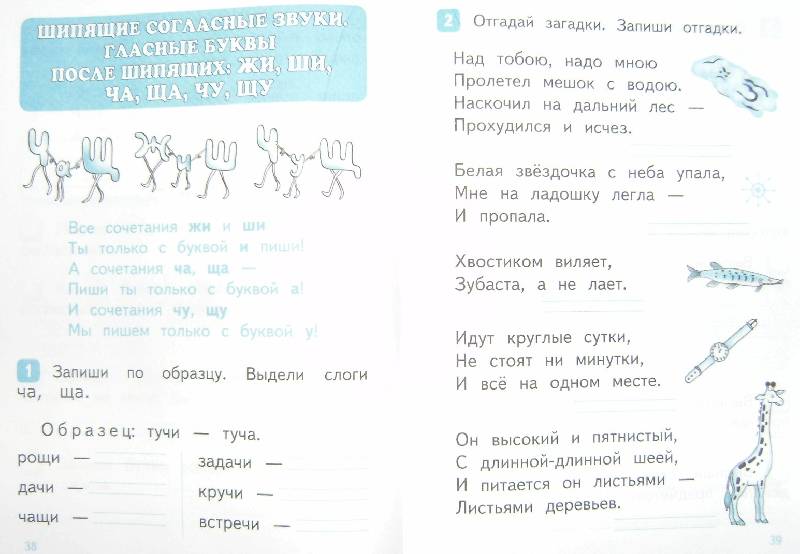 ШИПЯЩИЕ СОГЛАСНЫЕ ЗВУКИ.
ГЛАСНЫЕ БУКВЫ
ПОСЛЕ ШИПЯЩИХ: ЖИ, ШИ,
ЧА, ЩА, ЧУ, ЩУ
Ч а Щ Ж и Ш Ч у Щ
Все сочетания жи и ши
Ты только с буквой и пиши!
А сочетания ча, ща —
Пиши ты только с буквой а!
И сочетания чу, щу
Мы пишем только с буквой у!
1 Запиши по образцу. Выдели слоги
ча, ща.
Образец: тучи — туча.
рощи —
дачи —
чащи —
задачи —
кручи —
встречи —
38
2 Отгадай загадки. Запиши отгадки.
Над тобою, надо мною
Пролетел мешок с водою.
Наскочил на дальний лес —
Прохудился и исчез.
Белая звёздочка с неба упала,
Мне на ладошку легла —
И пропала.
Хвостиком виляет,
Зубаста, а не лает.
Идут круглые сутки,
Не стоят ни минутки,
И всё на одном месте.
Он высокий и пятнистый,
С длинной-длинной шеей,
И питается он листьями —
Листьями деревьев.
39